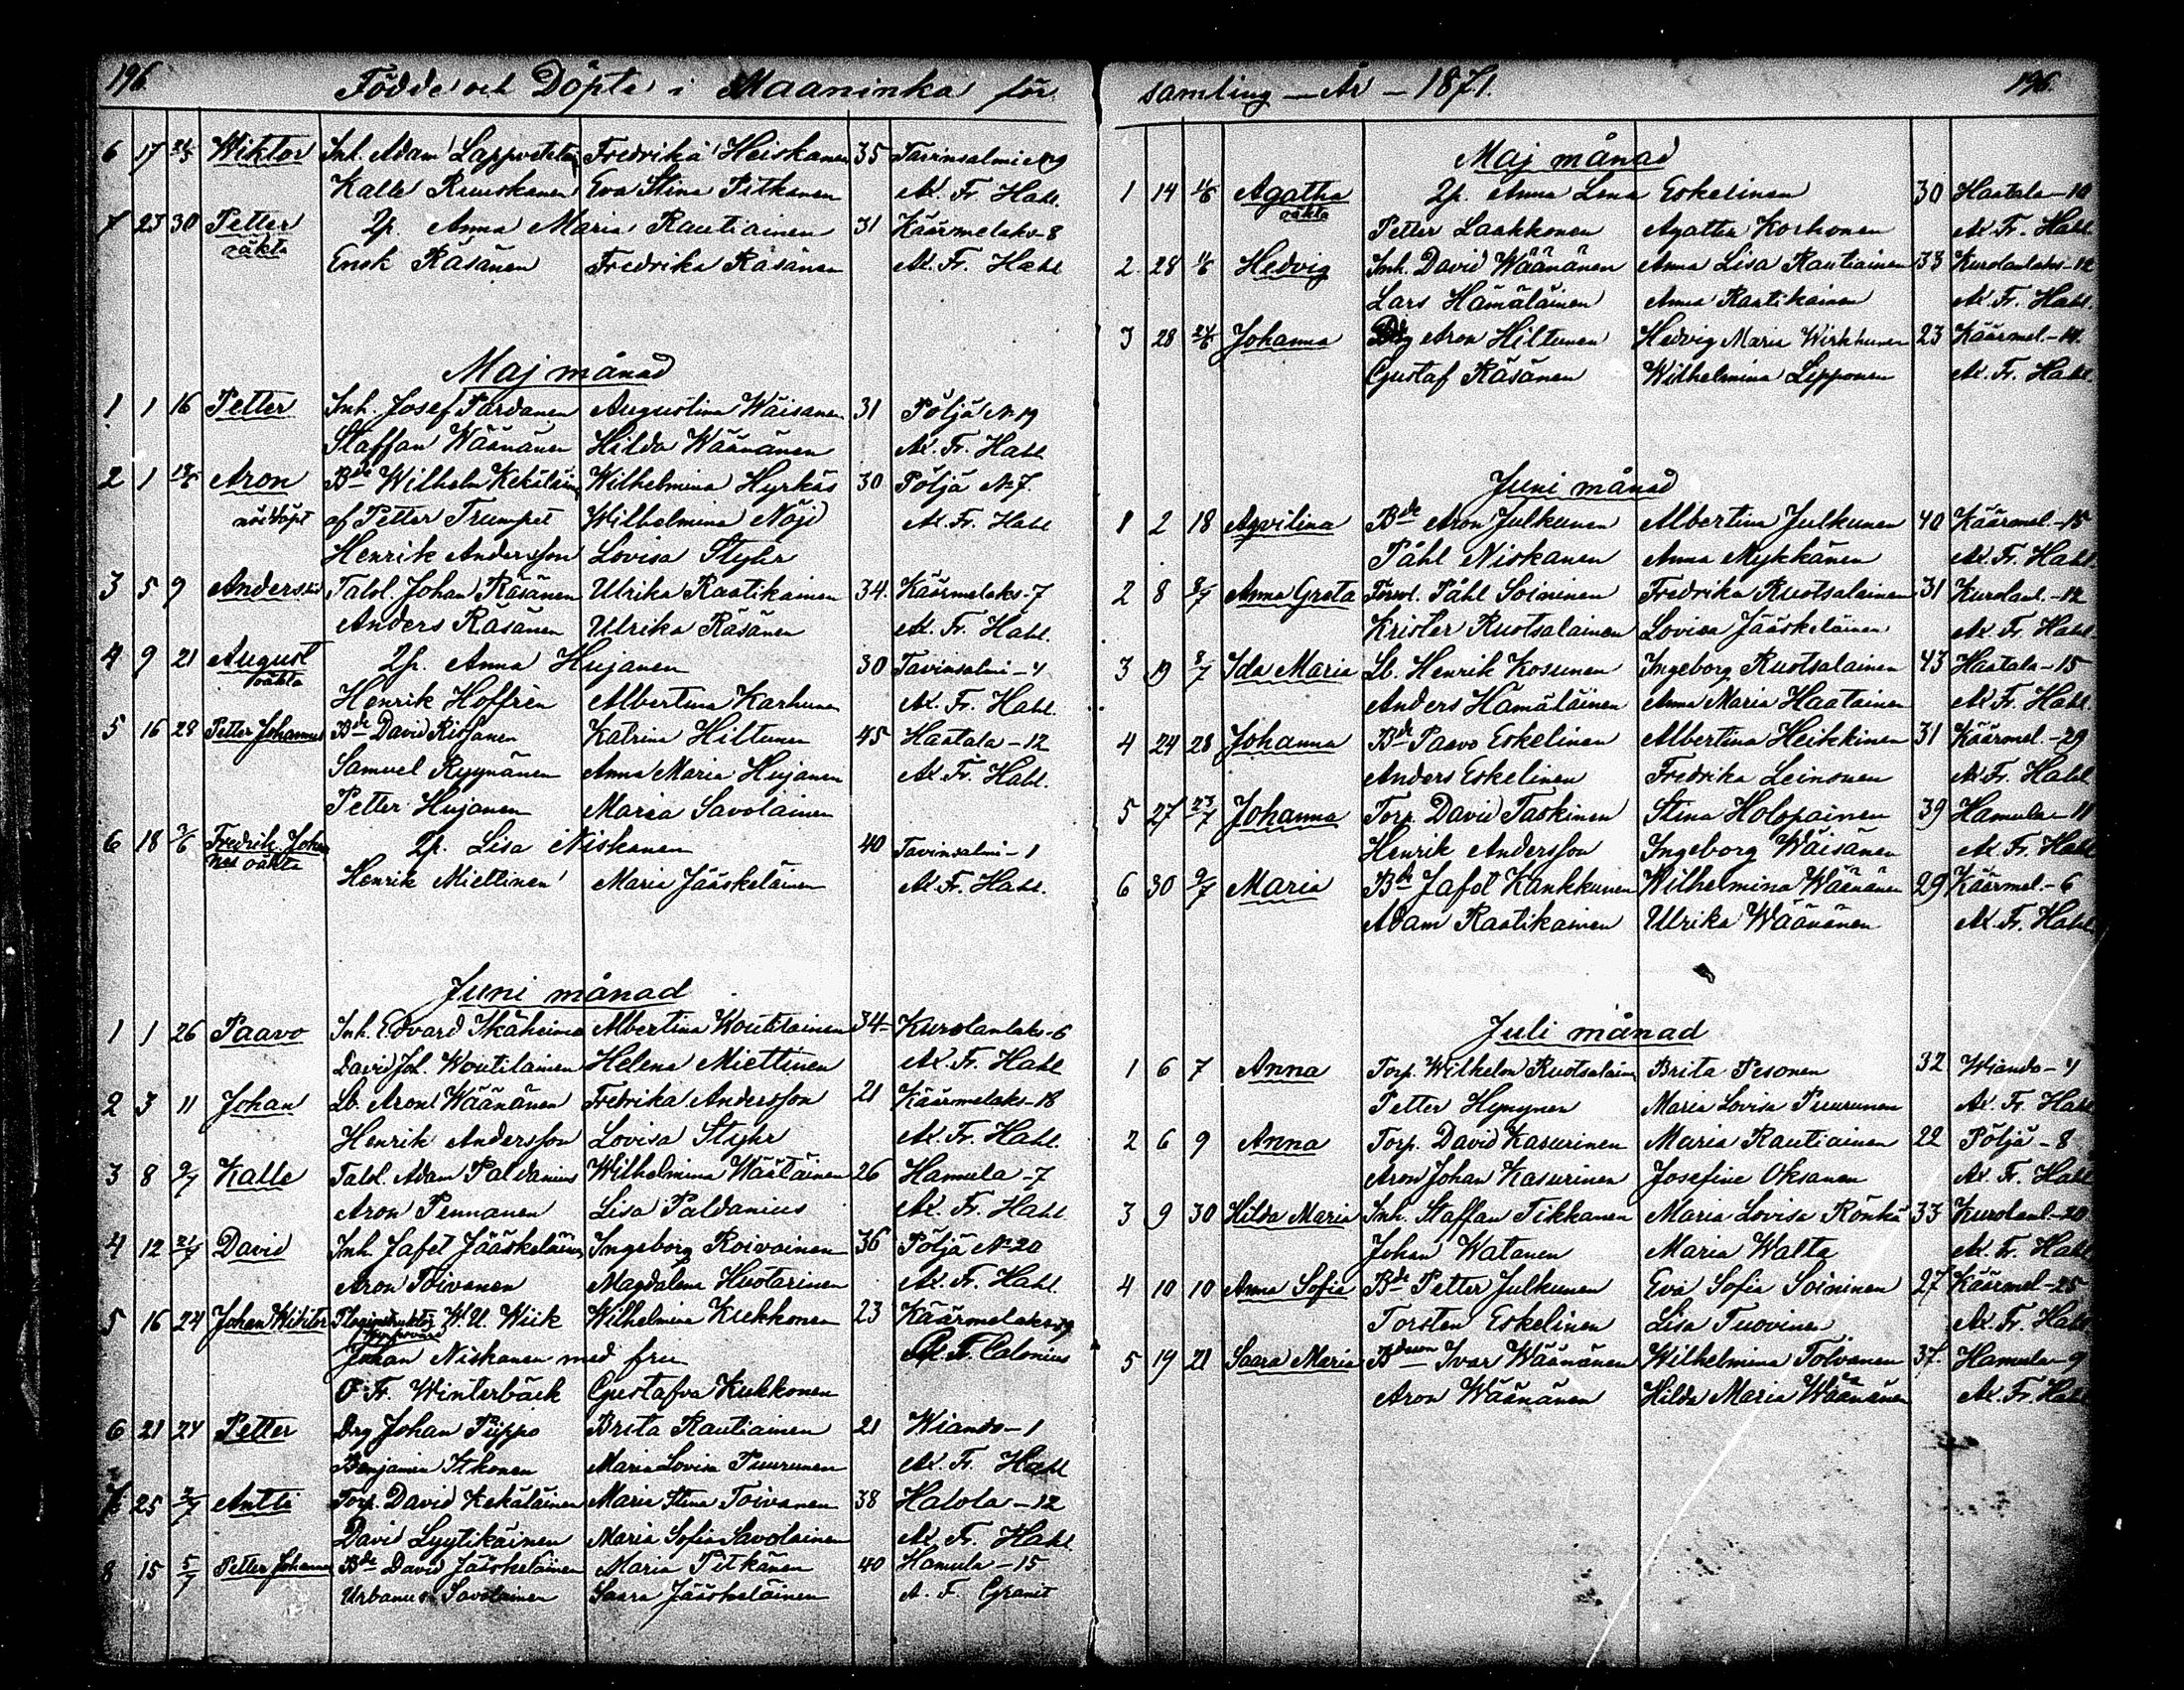 196.
Födde och Döpte i Maaninka för
6 17 21/5 Wiktor Inh. Adam Lappveteläin Fredrika Heiskanen 35 Tavinsalmi № 9
Kalle Ruuskanen Eva Stina Pitkänen Ad. Fr. Hahl.
7 23 30 Petter 2p. Anna Maria Rautiainen 31 Käärmelaks-8
oäkta Enok Räsänen Fredrika Räsänen Ad. Fr. Hahl
Maj månad
1 1 16 Petter Inh. Josef Pardanen Augustina Wäisänen 31 Pöljä № 19
Staffan Wäänänen Hilda Wäänänen Ad. Fr. Hahl
2 1 Aron Bde Wilhelm Kekäläinen Wilhelmina Hyrkäs 30 Pöljä № 7.
nöddöpt af Petter Trumpet Wilhelmina Nöjd Ad. Fr. Hahl
Henrik Andersson Lovisa Styhr
3 5 9 Anders Talol. Johan Räsänen Ulrika Raatikainen 34. Käärmelaks-7
Anders Räsänen Ulrika Räsänen Ad. Fr. Hahl.
4 9 21 August 2p. Anna Hujanen 30 Tavinsalmi-4
oäkta Henrik Hoffrén Albertina Karhunen Ad. Fr. Hahl.
5 16 28 Petter Johannes Bde David Rissanen Katrina Hiltunen 45 Haatala-12
Samuel Ryynänen Anna Maria Hujanen Ad. Fr. Hahl.
Petter Hujanen Maria Savolainen
6 18 Fredrik Johan 2p. Lisa Niskanen 40 Tavinsalmi-1
nes oäkta Henrik Miettinen Maria Jääskeläinen Ad. Fr. Hahl.
Juni månad
1 1 26 Paavo Inh. Edvard Ikäheimo Albertina Woutilainen 34 Kurolanlaks-6
David Joh. Woutilainen Helena Miettinen Ad. Fr. Hahl
2 3 11 Johan Lb. Aron Wäänänen Fredrika Andersson 21 Käärmelaks-18
Henrik Andersson Lovisa Styhr Ad. Fr. Hahl.
3 8 2/7 Kalle Talol. Adam Paldanius Wilhelmina Wäätäinen 26 Hamula-7
Aron Pennanen Lisa Paldanius Ad. Fr. Hahl
4 12 21/7 David Inh. Jafet Jääskeläinen Ingeborg Roivainen 36 Pöljä № 20
Aron Toivanen Magdalena Huotarinen Ad. Fr. Hahl.
5 16 24 Johan Wiktor W. U. Wiik Wilhelmina Kukkonen 23 Käärmelaks
Johan Niskanen med fru Calonius
O. Fr. Winterbäck Gustafva Kukkonen
6 21 24 Petter Drg Johan Piippo Brita Rautiainen 21 Wianda-1
Benjamin Itkonen Maria Lovisa Puurunen Ad. Fr. Hahl
7 25 2/7 Antti Torp. David Kekäläinen Maria Stina Toivanen 38 Halola-12
David Lyytikäinen Maria Sofia Savolainen Ad. Fr. Hahl
8 15 5/7 Petter Johannes Bde David Jääskeläinen Maria Pitkänen 40 Hamula-15
Urbanus Savolainen Saara Jääskeläinen A. F. Granit
196.
samling - År - 1871.
Maj månad
1 14 11/6 Agatha 2p. Anna Lena Eskelinen 30 Haatala-10
oäkta Petter Laakkonen Agatha Korhonen Ad. Fr. Hahl.
2. 28 11/6 Hedvig Inh. David Wäänänen Anna Lisa Rautiainen 33 Kurolanlaks-12
Lars Hämäläinen Anna Raatikainen Ad. Fr. Hahl.
3 28 24/6 Johanna Drg Aron Hiltunen Hedvig Maria Wirkkunen 23 Käärmel.-14.
Gustaf Räsänen Wilhelmina Lipponen Ad. Fr. Hahl.
Juni månad
1 2 18 Aqvilina Bde Aron Julkunen Albertina Julkunen 40 Käärmel.-15
Påhl Niskanen Anna Mykkänen Ad. Fr. Hahl.
2 8 8/7 Anna Greta Påhl Soininen Fredrika Ruotsalainen 31 Kurolanl.-12
Krister Ruotsalainen Lovisa Jääskeläinen Ad. Fr. Hahl.
3 19 8/7 Ida Maria Lb. Henrik Kosunen Ingeborg Ruotsalainen 43 Haatala-15
Anders Hämäläinen Anna Maria Haatainen Ad. Fr. Hahl.
4 24 28 Johanna Bde Paavo Eskelinen Albertina Heikkinen 31 Käärmel.-29
Anders Eskelinen Fredrika Leinonen Ad. Fr. Hahl
5 27 23/7 Johanna Torp. David Taskinen Stina Holopainen 39 Hamula-11
Henrik Andersson Ingeborg Wäisänen Ad. Fr. Hahl
6 30 2/7 Maria Bde Jafet Kankkunen Wilhelmina Wäänänen 29 Käärmel.-6
Adam Raatikainen Ulrika Wäänänen Ad. Fr. Hahl
Juli månad
1 6 7 Anna Torp. Wilhelm Ruotsalainen Brita Pesonen 32 Wianda-4
Petter Hynynen Maria Lovisa Puurunen Ad. Fr. Hahl
2 6 9 Anna Torp. David Kasurinen Maria Rautiainen 22 Pöljä-8
Aron Johan Kasurinen Josefine Oksanen Ad. Fr. Hahl
3 9 30 Hilda Maria Inh. Staffan Tikkanen Maria Lovisa Rönkä 33 Kurolanl-20
Johan Watanen Maria Walta Ad. Fr. Hahl
4 10 10 Anna Sofia Bde Petter Julkunen Eva Sofia Soininen 27 Käärmel-25
Torsten Eskelinen Lisa Tuovinen Ad. Fr. Hahl.
5 19 21 Saara Maria Bdeson Ivar Wäänänen Wilhelmina Tolvanen 37. Hamula-9
Aron Wäänänen Hilda Maria Wäänänen Ad. Fr. Hahl